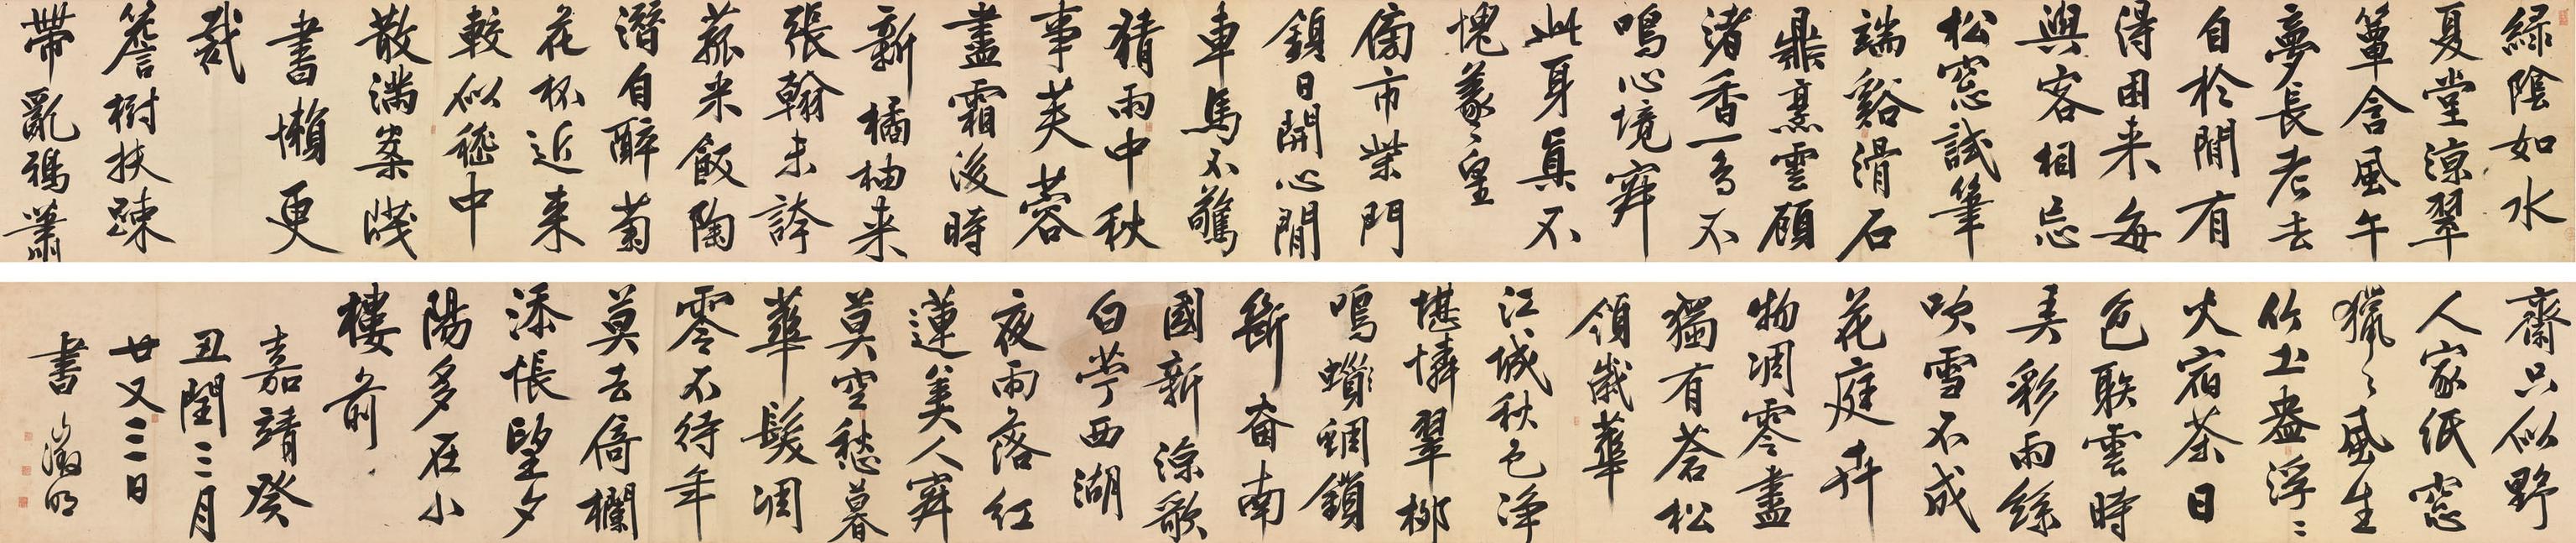 綠陰如水
夏堂涼翠
簟含風午
夢長老去
自於閒有
得困来每
與客相忘
松窓試筆
端谿滑石
鼎烹雲顧
渚香一鳥不
鳴心境寂
此身真不
愧羲〻皇
傍市柴門
鎖日開心閒
車馬不驚
猜雨中秋
事芙蓉
盡霜後時
新橘柚来
張翰未誇
菰米飯陶
潛自醉菊
花杯近来
較似嵇中
散滿案牋
書懶更
裁
簷樹扶疎
帶亂鴉蕭
齋只似野
人家紙窓
獵〻風生
竹土盎浮〻
火宿茶日
色联雲時
弄彩雨絲
吹雪不成
花庭卉
物凋零盡
獨有蒼松
領歲華
江城秋色淨
堪憐翠柳
鳴蜩鎖
斷畨南
國新涼歌
白苧西湖
夜雨落紅
蓮美人寂
莫空愁暮
華髮凋
零不待年
莫去倚欄
添悵望夕
陽多在小
樓前
嘉靖癸
丑閏三月
廿又三日
書 徵明